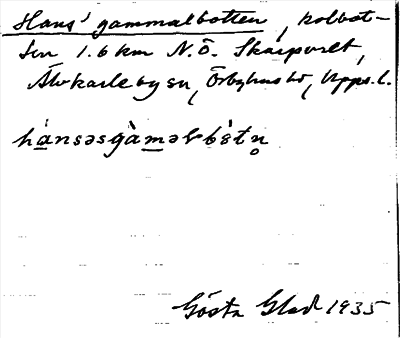 Hans' gammalbotten, kolbot-
ten 1.6 km N.Ö. Skärpvret,
Älvkarleby sn, Örbyhus hd, Upps. l.
hànsəsgàməlbètn̥
Gösta Glad 1935